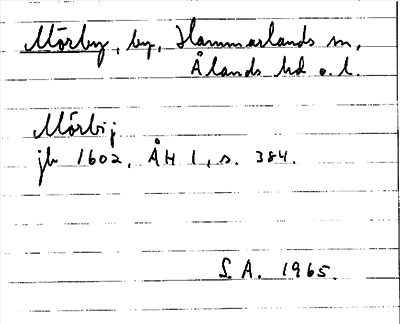 Mörby, by, Hammarlands sn,
Ålands hd o. l.
Mörbij
jb 1602, ÅH 1, s. 384.
S. A. 1965.